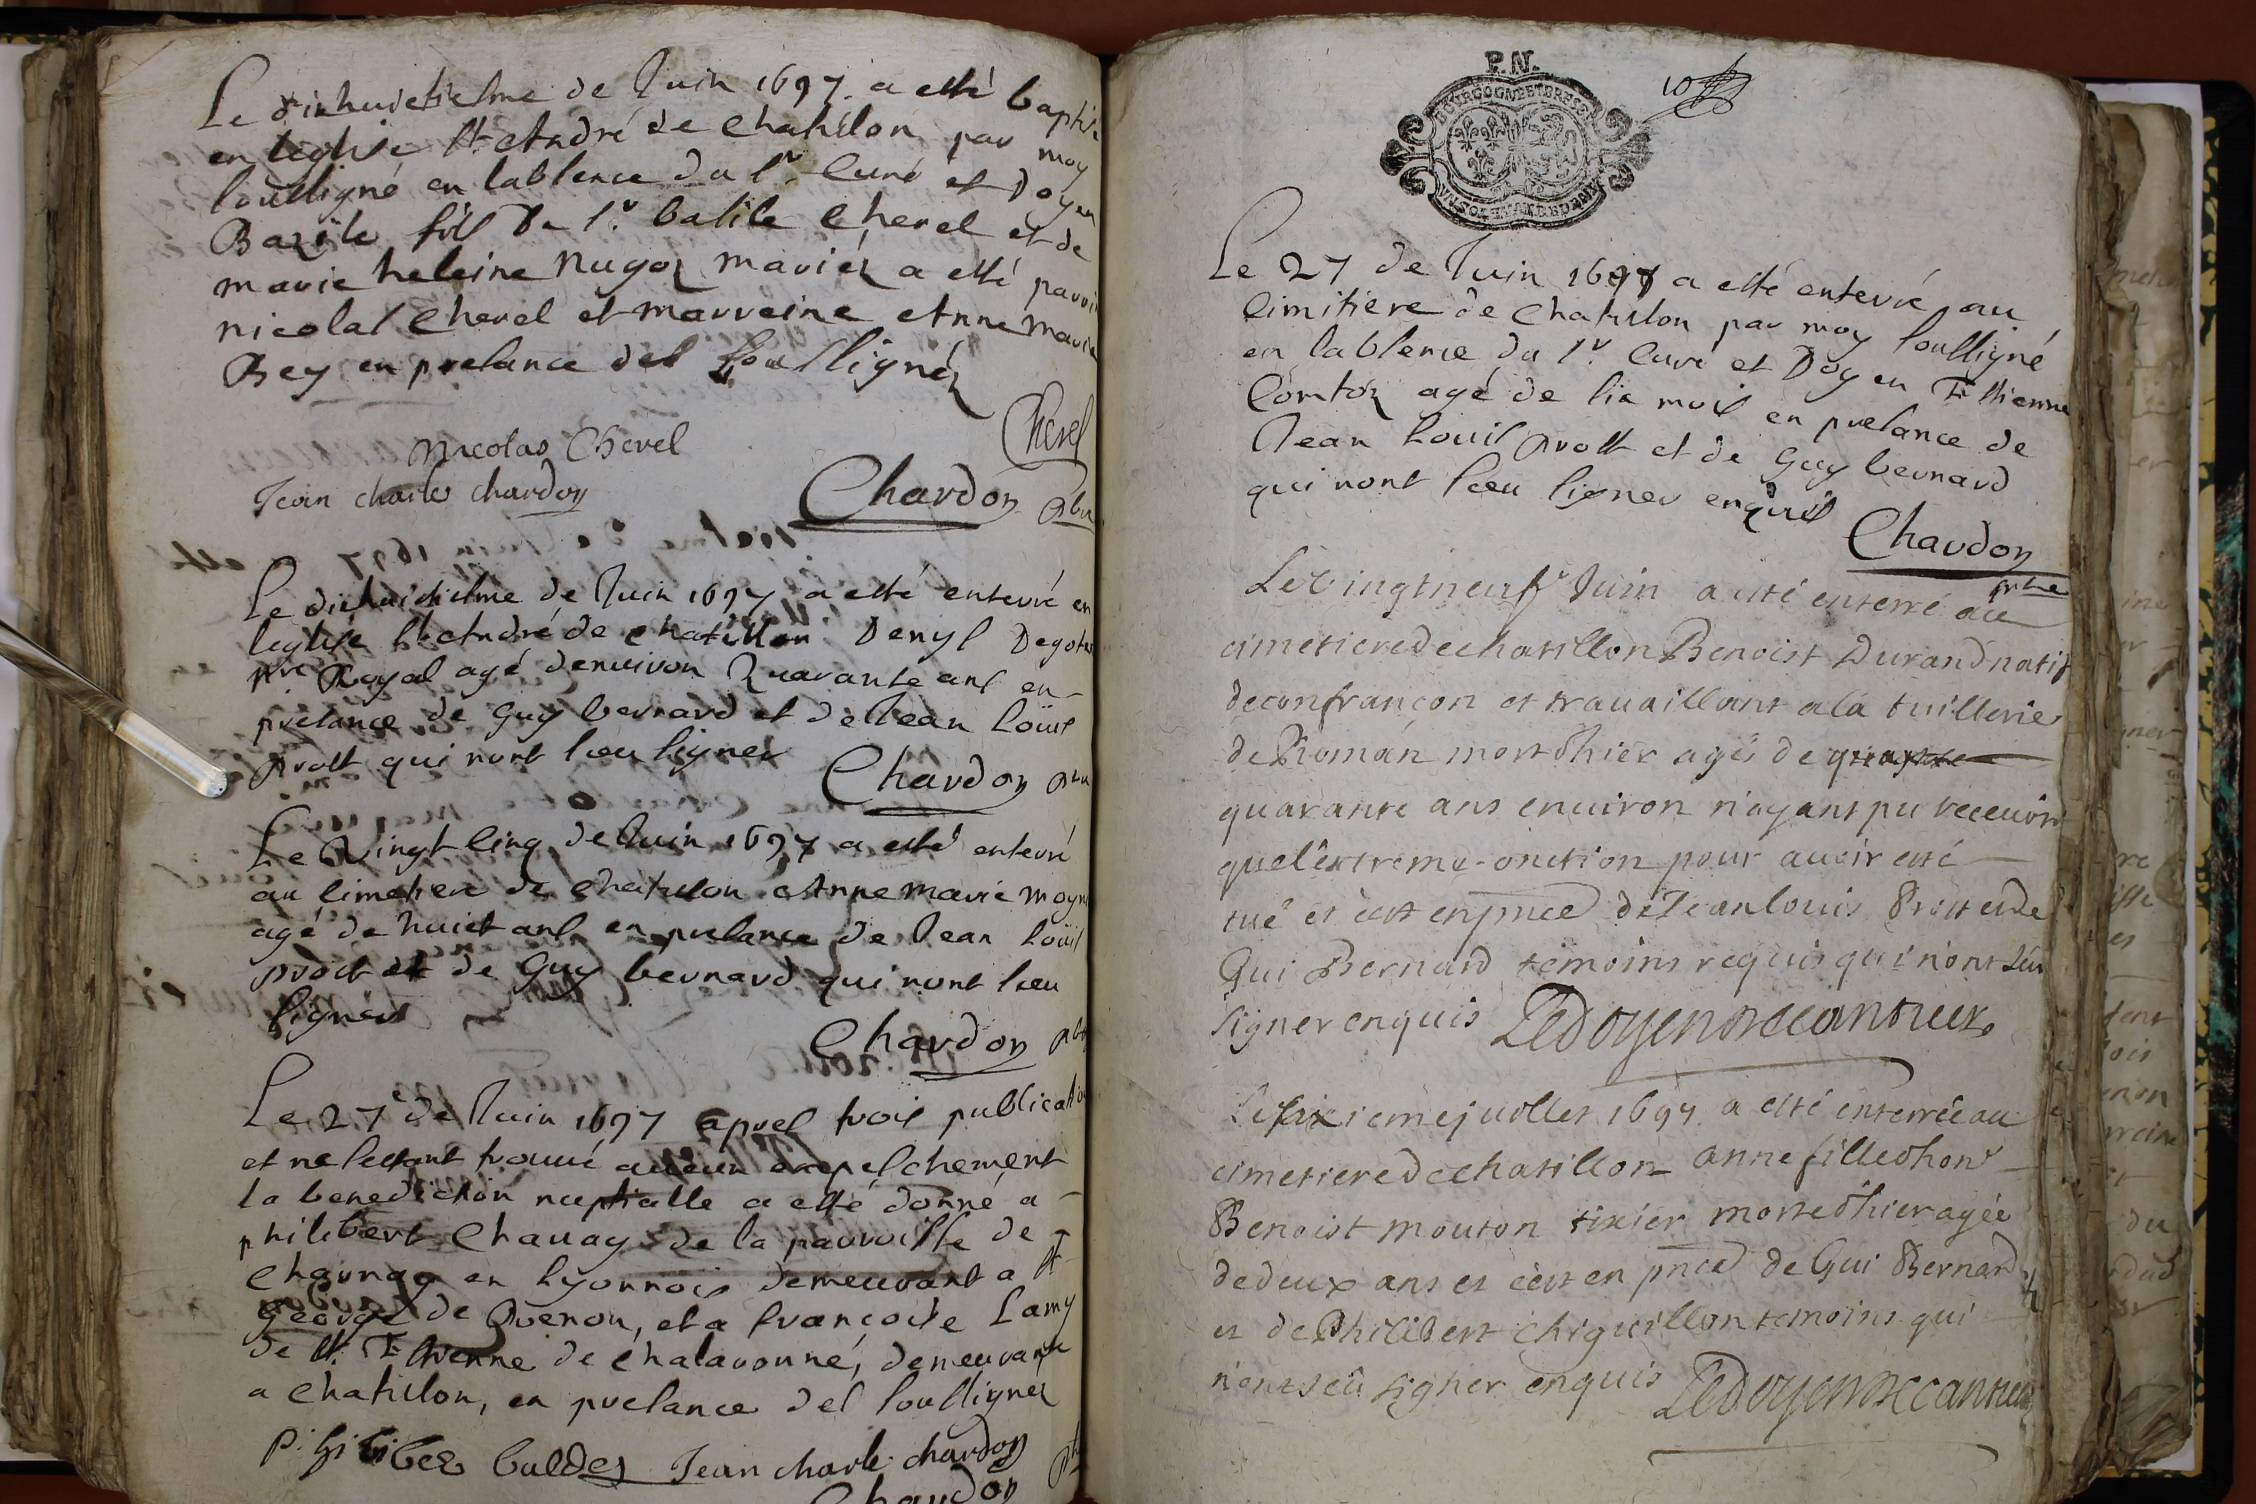 Le dixhuictiesme de Juin 1697. a esté baptisé
en leglise St André de Chatillon par moy
soussigné en labsence du Sr. Curé et Doyen
Bazile fils De Sr. basile Chevel et de
marie heleine nugoz mariéz a esté parrin
nicolas Chevel et marreine Anne Marie
Rey en presance des soussignéz
Chevel
Nicolas Chevel
Jean charles chardon
Chardon pbre
Le dixhuictiesme de Juin 1697 a esté enterré en
leglise St André de chatillon Denys Degotes
nre Royal agé denviron Quarante ans en
presance de Guy bernard et de Jean Loüis
prost qui nont sceu signer
Chardon pbre
Le Vingt cinq de Juin 1697 a esté enterré
au cimetiere de Chatillon Anne marie moyn
agé de huict ans en presance de Jean Loüis
prost et de Guy bernard qui nont sceu
signer
Chardon pbre
Le 27e de Juin 1697 apres trois publication
et ne sestant trouvé aucun empeschement
la benediction nuptialle a esté donné a
philibert Chavay de la parroisse de
en Lyonnois demeurant a St
George de Renon, et a françoise Lamy
de St. Estienne de chalaronne, demeurante
a chatillon, en presance des soussignéz
Jean charle chardon
Chardon
P.N.
BOURGOGNE ET BRESSE
10
Le 27 de Juin 1697 a esté enterré au
cimitiere de Chatillon par moy soussigné
en labsence du Sr. Curé et Doyen Estienne
Comtoz agé de six mois en presance de
Jean Louis prost et de Guy bernard
qui nont sceu signer enquis
Chardon
pbre
Le vingtneuf Juin a esté enterré au
cimetiere de chatillon Benoist Durand natif
de confrançon et travaillant a la tuillerie
de Roman mort d'hier agé de
quarante ans environ n'ayant pu recevoir
que l'extreme-onction pour avoir esté
tué et c'est en pnce de Jean louis Prost et de
Gui Bernard temoins requis qui n'ont sceu
signer enquis Ledoyen Decanrieux
Le sixieme juillet 1697 a esté enterrée au
cimetiere de chatillon anne fille d'hont
Benoist mouton tixier morte d'hier agée
de deux ans et c'est en pnce de Gui Bernard
et de Philibert Chiguillon temoins qui
n'ont sceu signer enquis Ledoyen Decanrieux